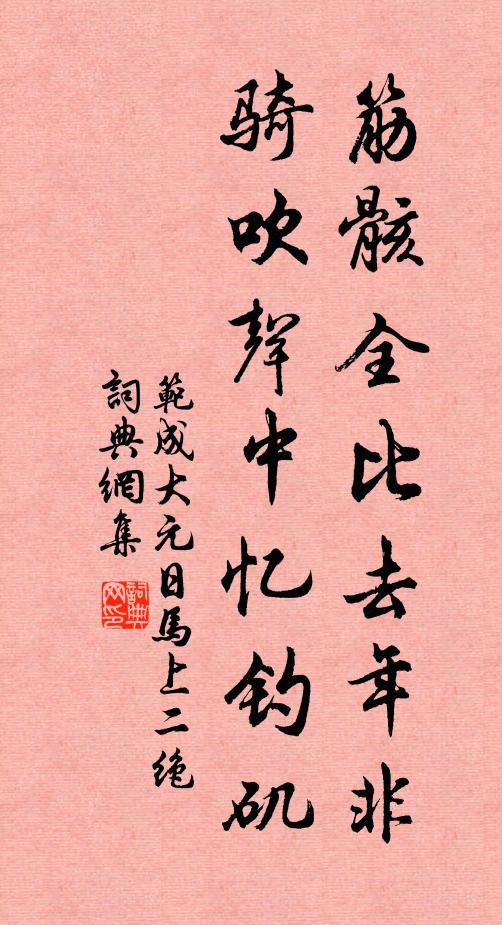 筋骸全比去年非
骑吹聲中忆钓矶
範成大元日馬上二绝
詞典網集
詞典网印